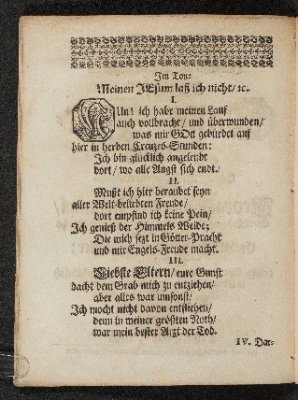 Im Ton:
Meinen JEsum laß ich nicht/ ꝛc.
I.
NUn! ich habe meinen Lauf
auch vollbracht/ und überwunden/
was mir GOtt gebürdet auf
hier in herben Creutzes-Stunden:
Ich bin glücklich angeländt
dort/ wo alle Angst sich endt.
II.
Mußt ich hier beraubet seyn
aller Welt-beliebten Freude/
dort empfind ich keine Pein/
Ich genieß der Himmels Weide;
Die mich setzt in Götter-Pracht
und mir Engels-Freude macht.
III.
Liebste Eltern/ eure Gunst
dacht dem Grab mich zu entziehen/
aber alles war umsonst/
Ich mocht nicht davon entfliehen/
denn in meiner größten Noth/
war mein bester Arzt der Tod.
IV. Dar-